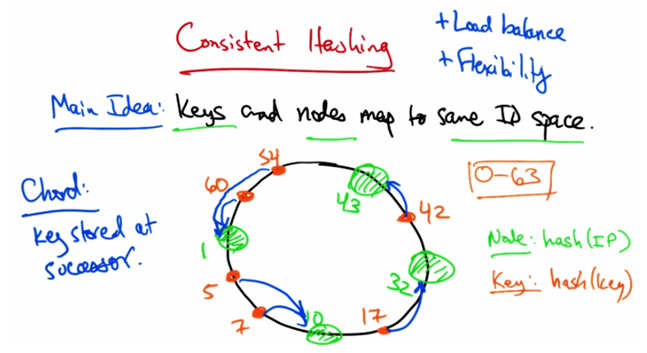 Consistent Hashing
+ Load balance
+ Flexibility
Main Idea: Keys and nodes map to same ID space.
Chord:
Key stored at
successor.
54
60
43
42
1
32
5
7
10
17
0-63
Node: hash(IP)
Key: hash(key)